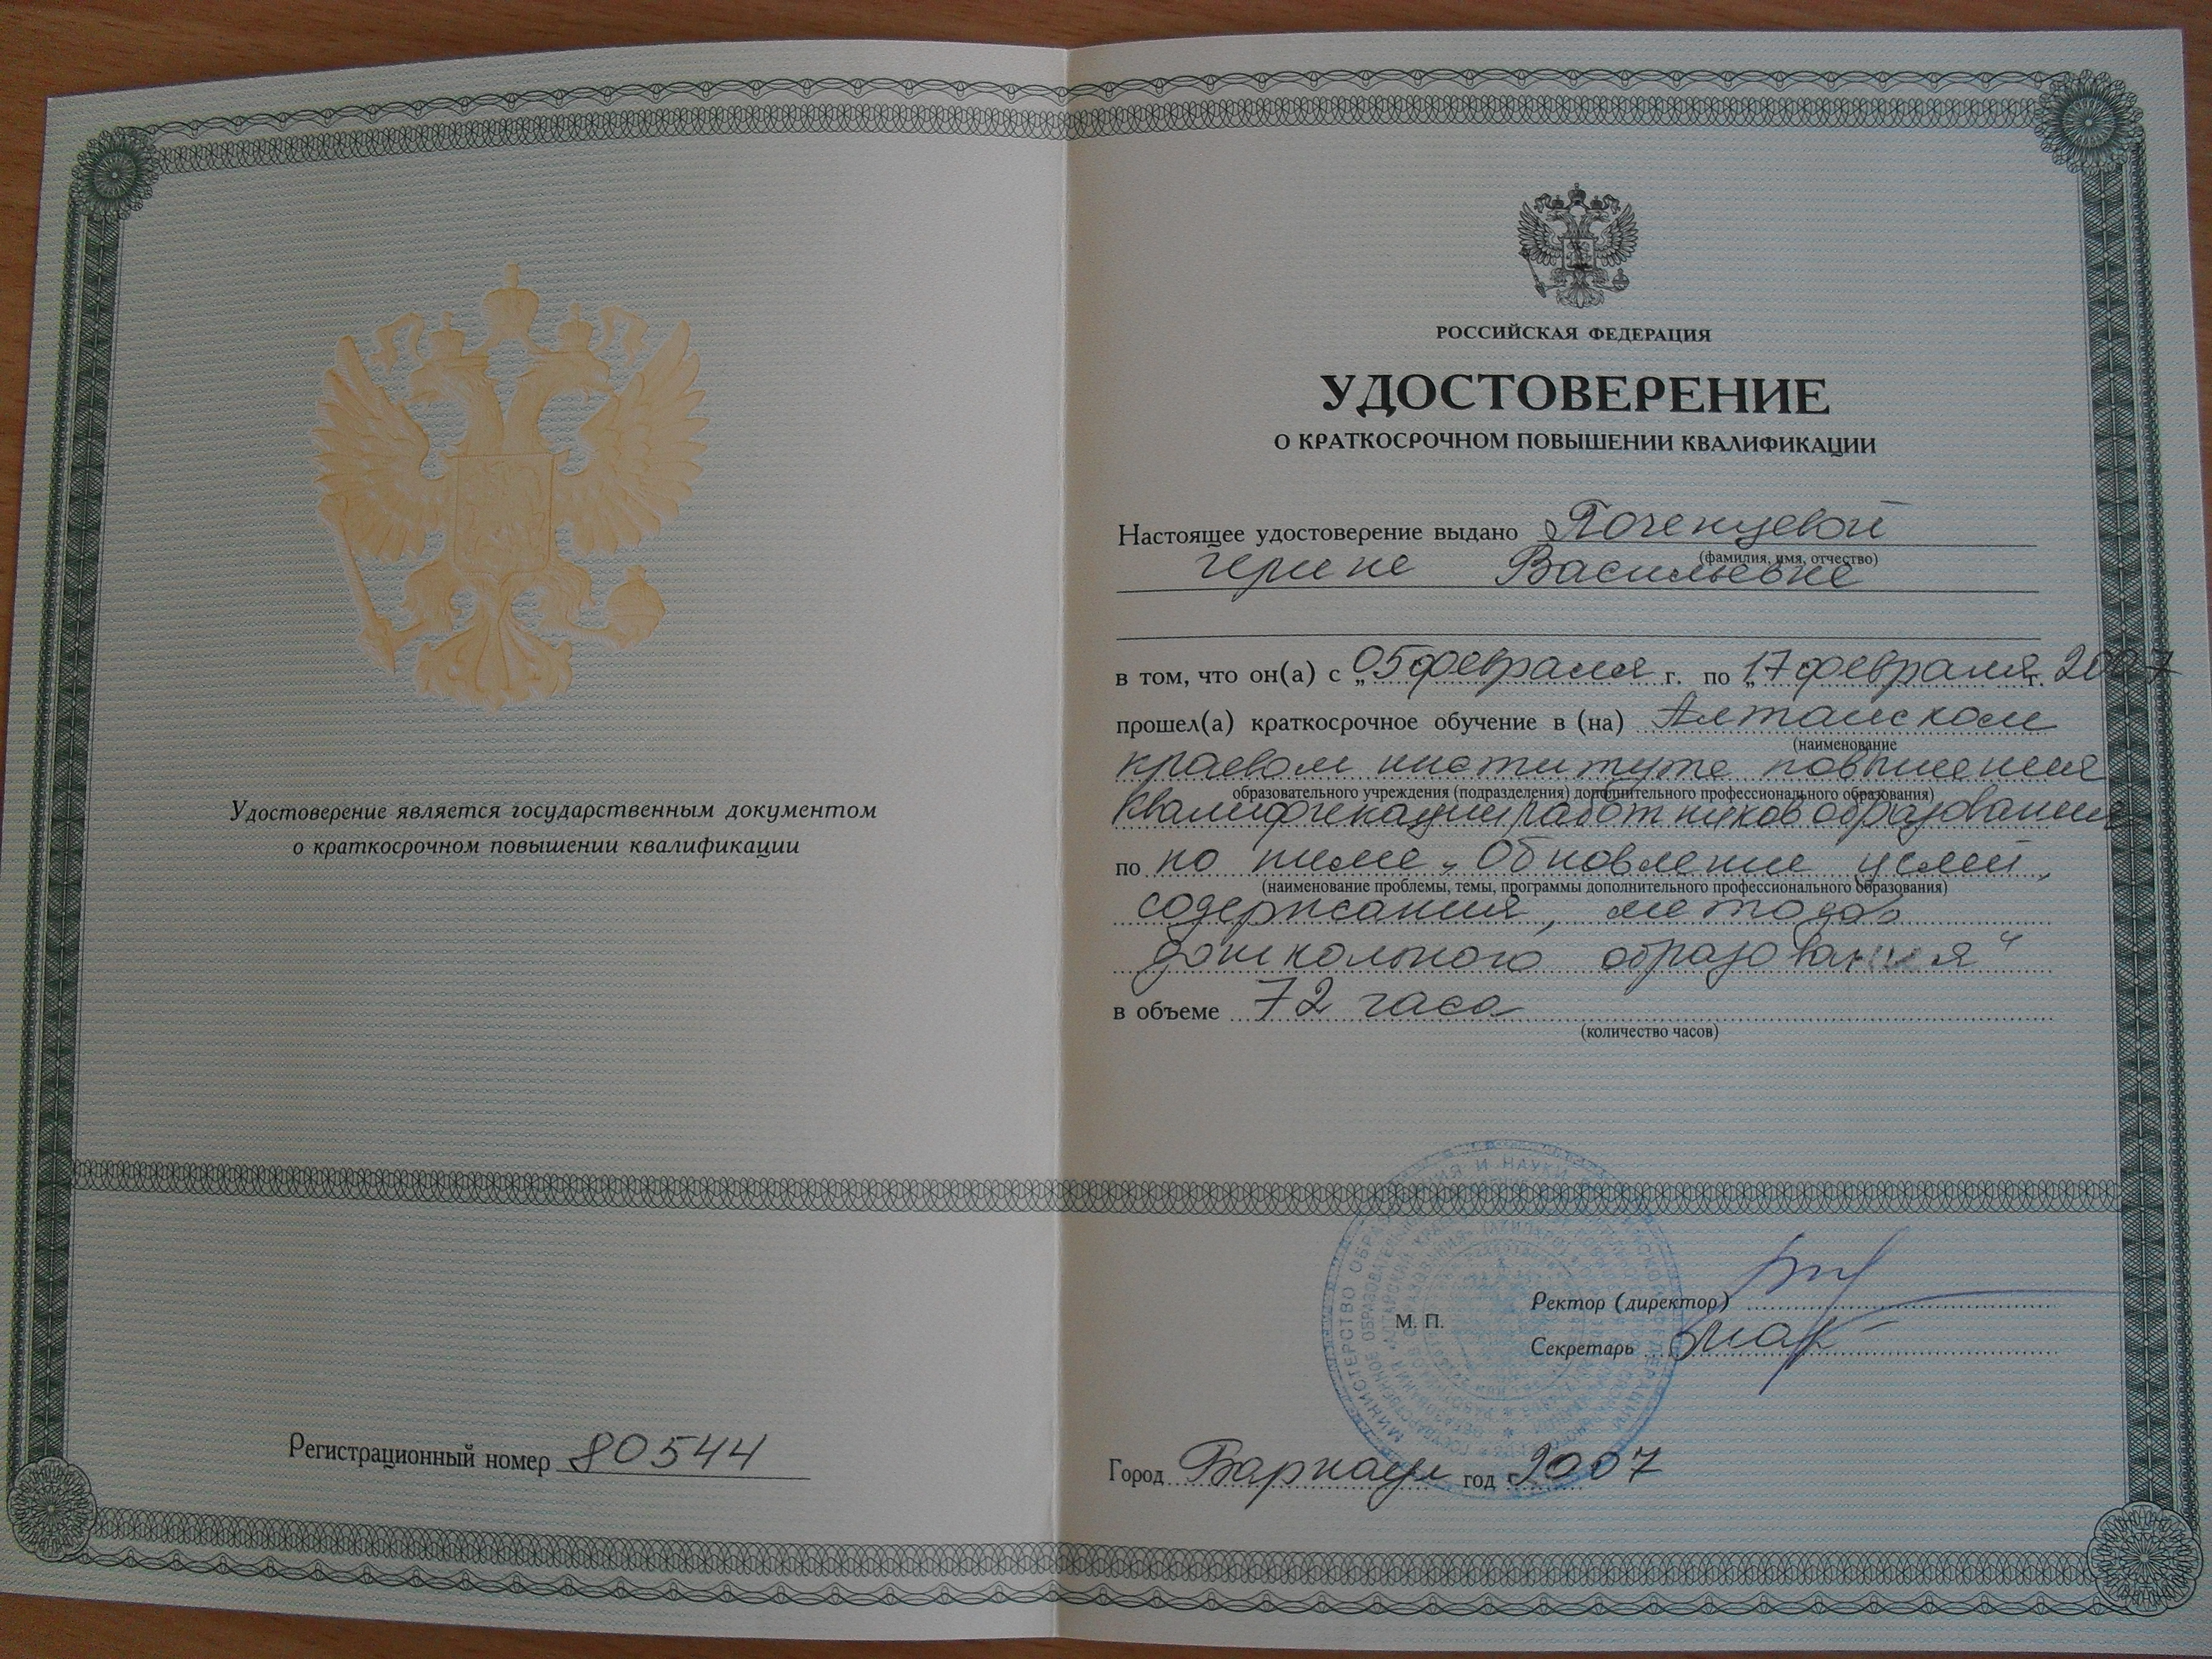 Удостоверение является государственным документом
о краткосрочном повышении квалификации
Регистрационный номер 80544
РОССИЙСКАЯ ФЕДЕРАЦИЯ
УДОСТОВЕРЕНИЕ
О КРАТКОСРОЧНОМ ПОВЫШЕНИИ КВАЛИФИКАЦИИ
Настоящее удостоверение выдано Поченцевой
(фамилия, имя, отчество)
Ирине Васильевне
в том, что он(а) с „05 февраля г. по „17 февраля г. 2007
прошел(а) краткосрочное обучение в (на) Алтайском
(наименование
краевом институте повышения
образовательного учреждения (подразделения) дополнительного профессионального образования)
квалификации работников образования
по по теме „Обновление целей,
(наименование проблемы, темы, программы дополнительного профессионального образования)
содержания, методов
дошкольного образования"
в объеме 72 часа
(количество часов)
М. П.
Ректор (директор)
Секретарь
Город Барнаул год 2007